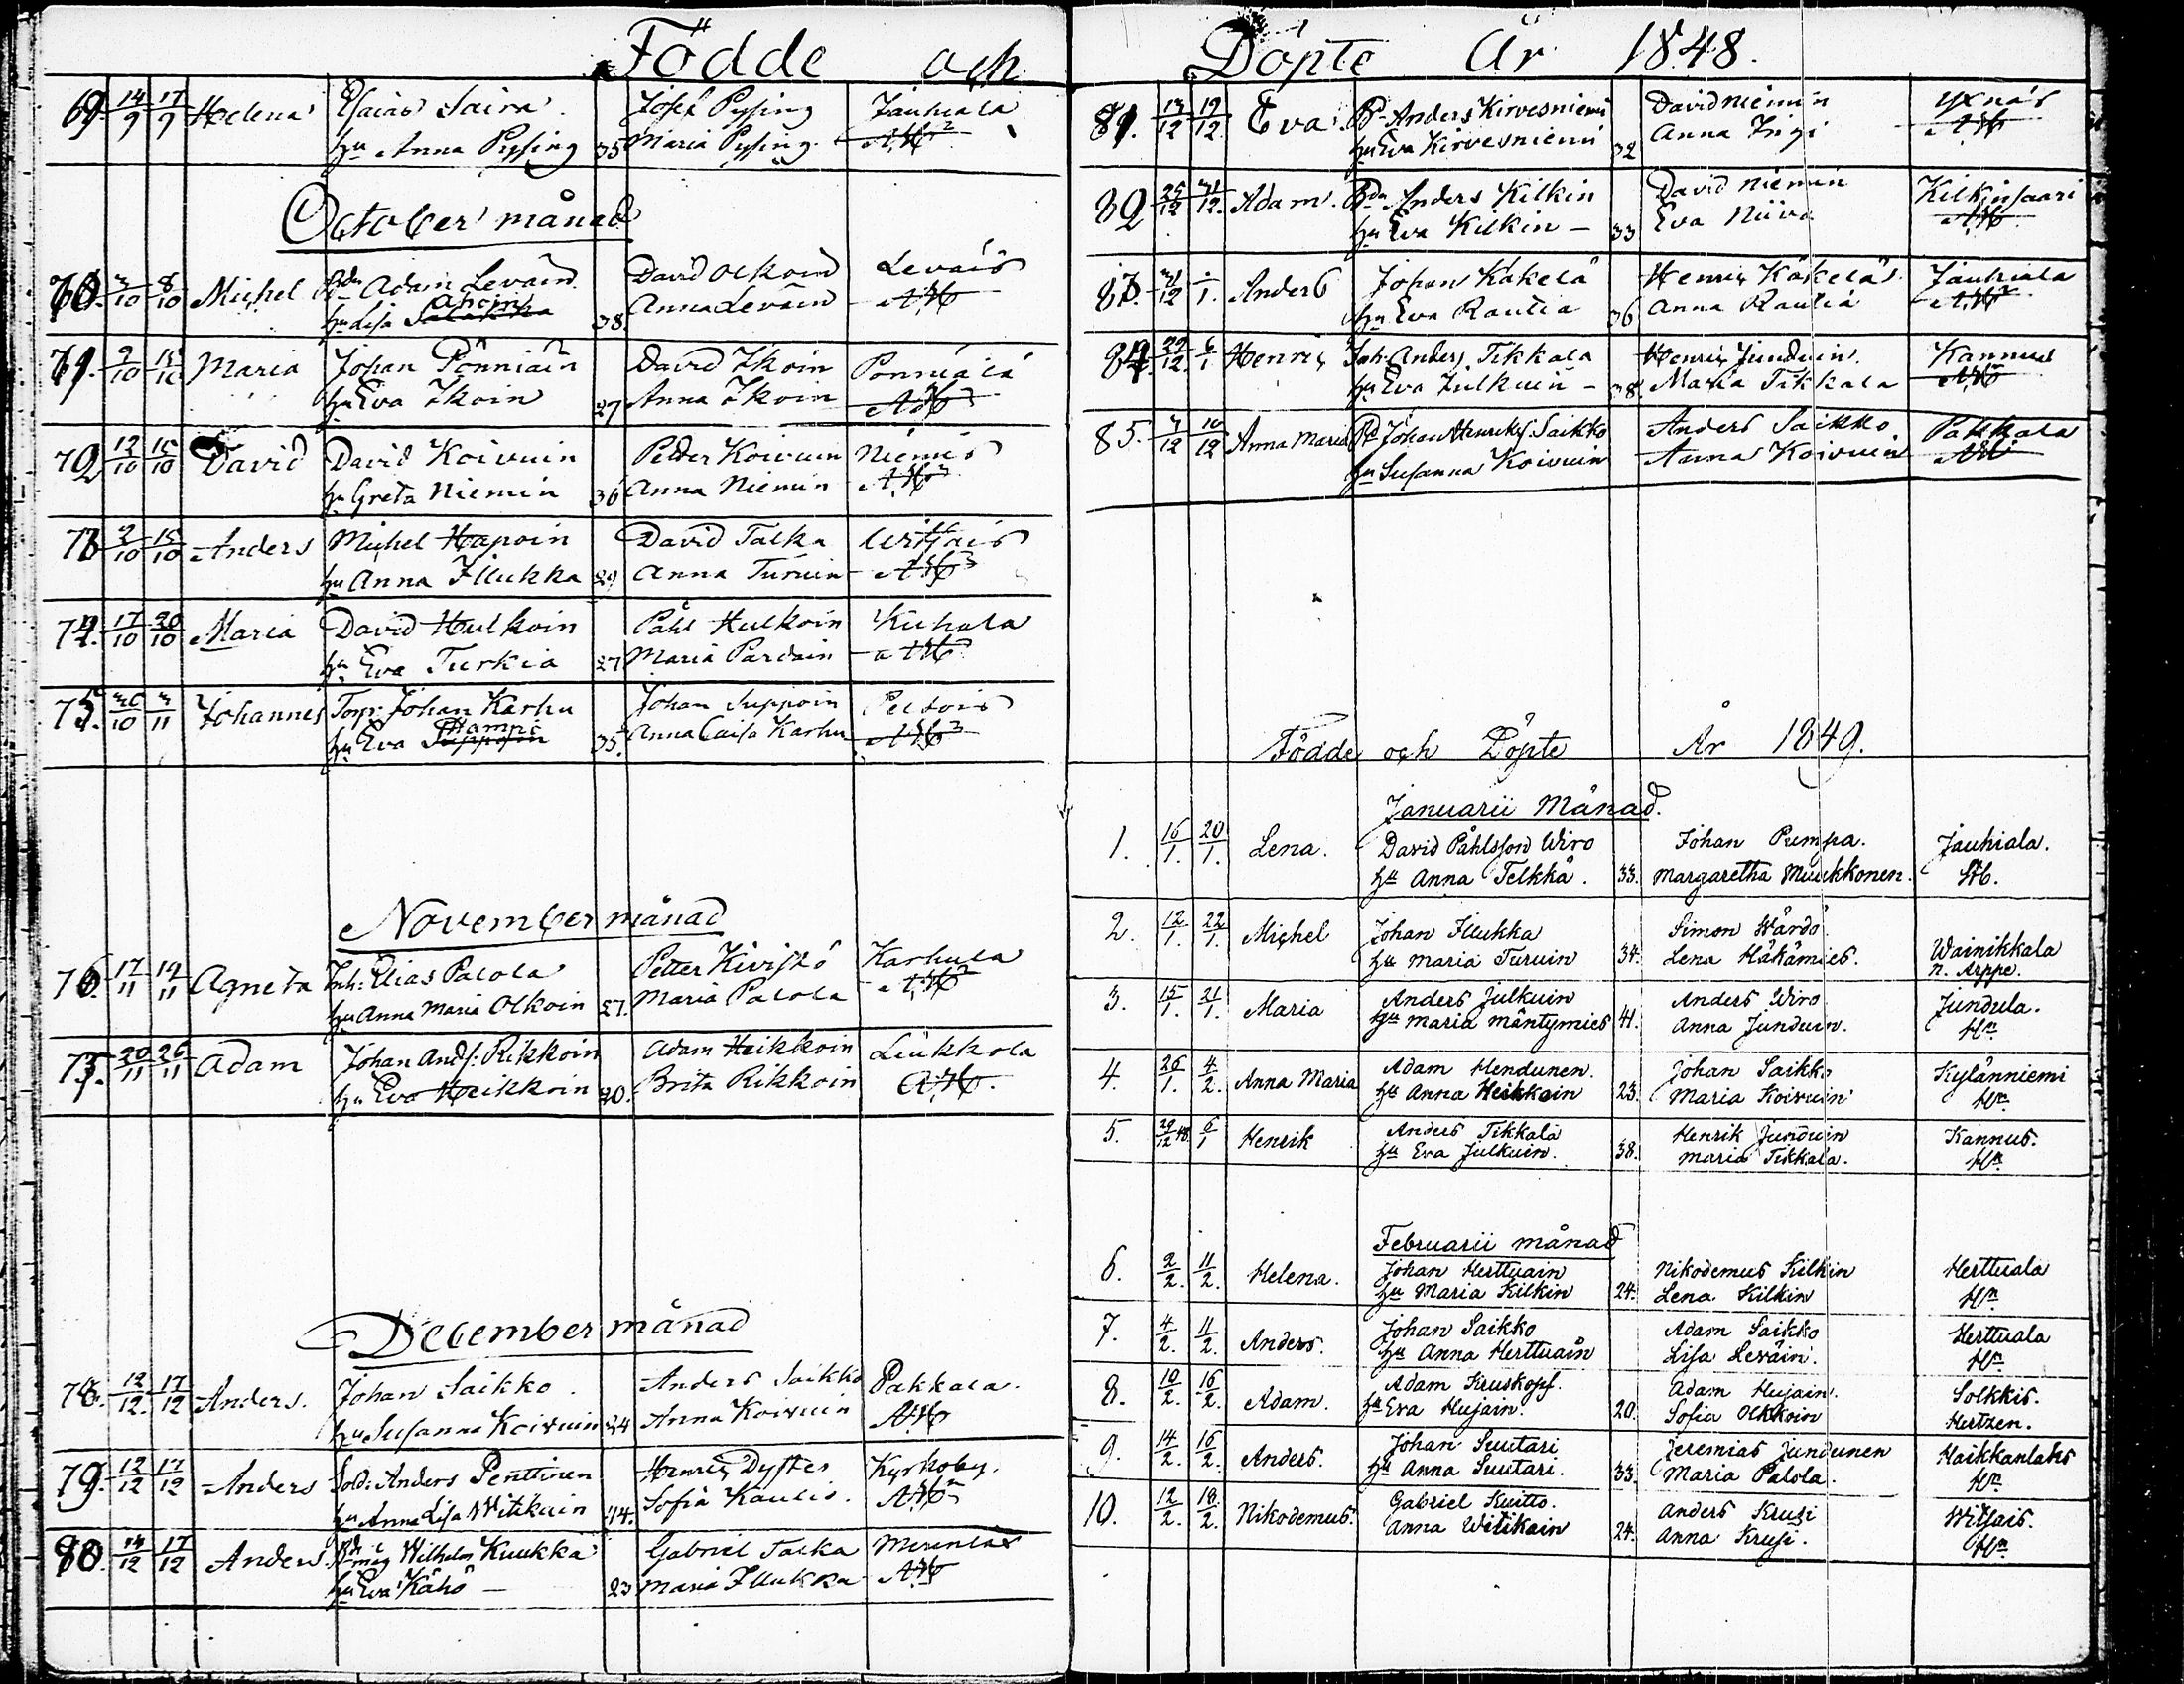 Födde och
69. 14/9 17/9 Helena Esaias Saira Josef Pysing Jauhiala
hu Anna Pysing 35 Maria Pysing
October månad
70. 3/10 8/10 Michel Adam Leväin David Olkoin Leväis
hu Lisa Ahoin 38. Anna Leväin
71. 9/10 15/10 Maria Johan Pönniäin David Ikoin Ponniälä
hu Eva Ikoin 27 Anna Ikoin
72 12/10 15/10 David David Koivuin Petter Koivuin Niemis
hu Greta Niemin 36 Anna Niemin
73 9/10 15/10 Anders Michel Hapoin David Talka Witsais
hu Anna Illukka 29 Anna Turuin
74. 17/10 20/10 Maria David Hulkoin Påhl Hulkoin Kuhala
hu Eva Turkia 27 Maria Pardain
75. 30/10 3/11 Johannes Torp: Johan Karhu Johan Suppoin Peltois
hu Eva Hampi 35. Anna Caisa Karhu
November månad
76. 17/11 19/11 Agneta Inh: Elias Palola Petter Kiviskö Karhula
hu Anna Maria Olkoin 27. Maria Palola
20/11 26/11 Adam Johan Ands: Rikkoin Adam Heikkoin Leukkola
hu Eva Heikkoin 20. Brita Rikkoin
December månad
78. 12/12 17/12 Anders. Johan Saikko Anders Saikko Pakkala.
hu Susanna Koivuin 24 Anna Koivuin
79. 12/12 17/12 Anders Sold: Anders Penttinen Henric Dyster Kyrkoby.
hu Anna Lisa Witikain 44. Sofia Kaulio.
80. 14/12 17/12 Anders Wilhelm Kuukka Gabriel Talka Merenlax
hu Eva Kähö — 23 Maria Illukka
Döpte År 1848.
81. 13/12 19/12 Eva. Anders Kirvesniemi David Niemin Yxnäs
hu Eva Kirvesniemi 32 Anna Ingi
82 25/12 31/12 Adam. Bdn Anders Kilkin David Niemin Kilkinsaari
hu Eva Kilkin — 33 Eva Niiva
83. 31/12 1/1. Anders Johan Käkelä Henric Käkelä Jauhiala
hu Eva Rautia 36 Anna Rautia
84. 29/12 6/1 Henric Inh: Anders Tikkala Henric Junduin. Kannus
hu Eva Julkuin — 38. Maria Tikkala
85. 4/12 10/12 Anna Maria Johan Henriks: Saikko Anders Saikko Pakkala
hu Susanna Koivuin Anna Koivuin
Födde och Döpte År 1849.
Januarii Månad.
1. 16/1. 20/1. Lena. David Påhlsson Wiro Johan Pumpa. Jauhiala.
hu Anna Telkkä. 33. Margaretha Muukkonen. Hb.
2. 12/1. 22/1. Michel Johan Illukka Simon Wårdo Wainikkala
hu Maria Turuin 34. Lena Häkämies. n. Arppe.
3. 15/1. 21/1. Maria Anders Julkuin Anders Wiro Jundula.
hu Maria Mäntymies 41. Anna Junduin. Hn
4. 26/1. 4/2. Anna Maria Adam Hendunen. Johan Saikko Kylänniemi
hu Anna Heikkoin 23. Maria Koivuin Hn
5. 29/12 48. 6/1 Henrik Anders Tikkala Henrik Junduin Kannus.
hu Eva Julkuin. 38. Maria Tikkala. Hn
Februarii månad
6. 2/2. 11/2. Helena. Johan Herttuain Nikodemus Kilkin Herttuala
hu Maria Kilkin 24. Lena Kilkin Hn
7. 4/2. 11/2. Anders. Johan Saikko Adam Saikko Herttuala
hu Anna Herttuain Lisa Leväin. Hn
8. 10/2. 16/2. Adam. Adam Kruskopf. Adam Hujain. Solkkis.
hu Eva Hujain. 20. Sofia Olkkoin Hertzen.
9. 14/2. 16/2. Anders. Johan Suutari Jeremias Jundunen Haikkanlaks
hu Anna Suutari. 33. Maria Palola. Hn
10. 12/2. 18/2. Nikodemus. Gabriel Kuitto. Anders Krusi Witsais.
Anna Witikain 24. Anna Krusi. Hn